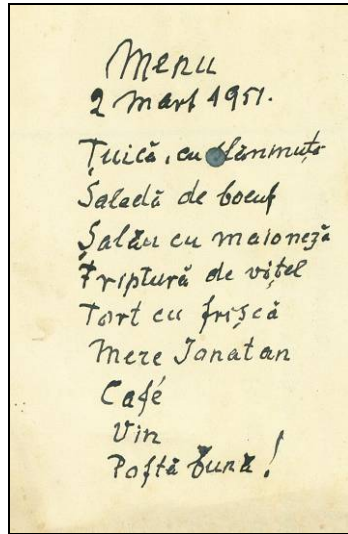 Menu
2 Mart 1951.
Țuică, cu
Saladă de boeuf
Șalău cu maioneză
Friptură de vițel
Tort cu frișcă
Mere Jonatan
Café
Vin
Poftă bună!